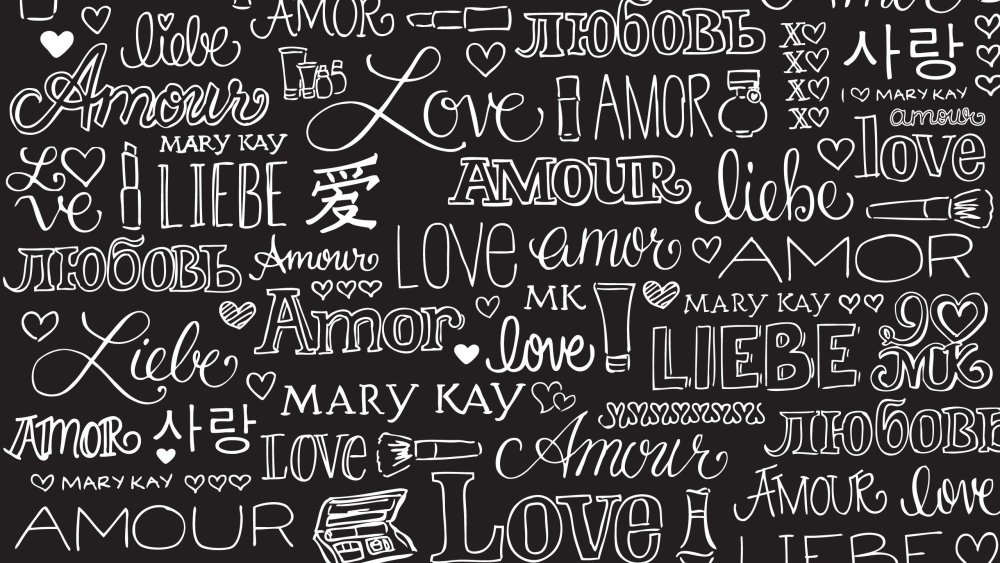 AMOR
Amor
liebe
ЛЮБОВЬ
X♡
X♡
X♡
X♡
사랑
Amour
Love
AMOR
I ♡ MARY KAY
amour
MARY KAY
love
Love
LIEBE
愛
AMOUR
liebe
ЛЮБОВЬ
Amour
LOVE
amor
AMOR
Amor
MK
MARY KAY
Liebe
love
LIEBE
MK
MARY KAY
AMOR
사랑
LOVE
Amour
ЛЮБОВЬ
MARY KAY
AMOUR
Love
AMOUR
love
LIEBE